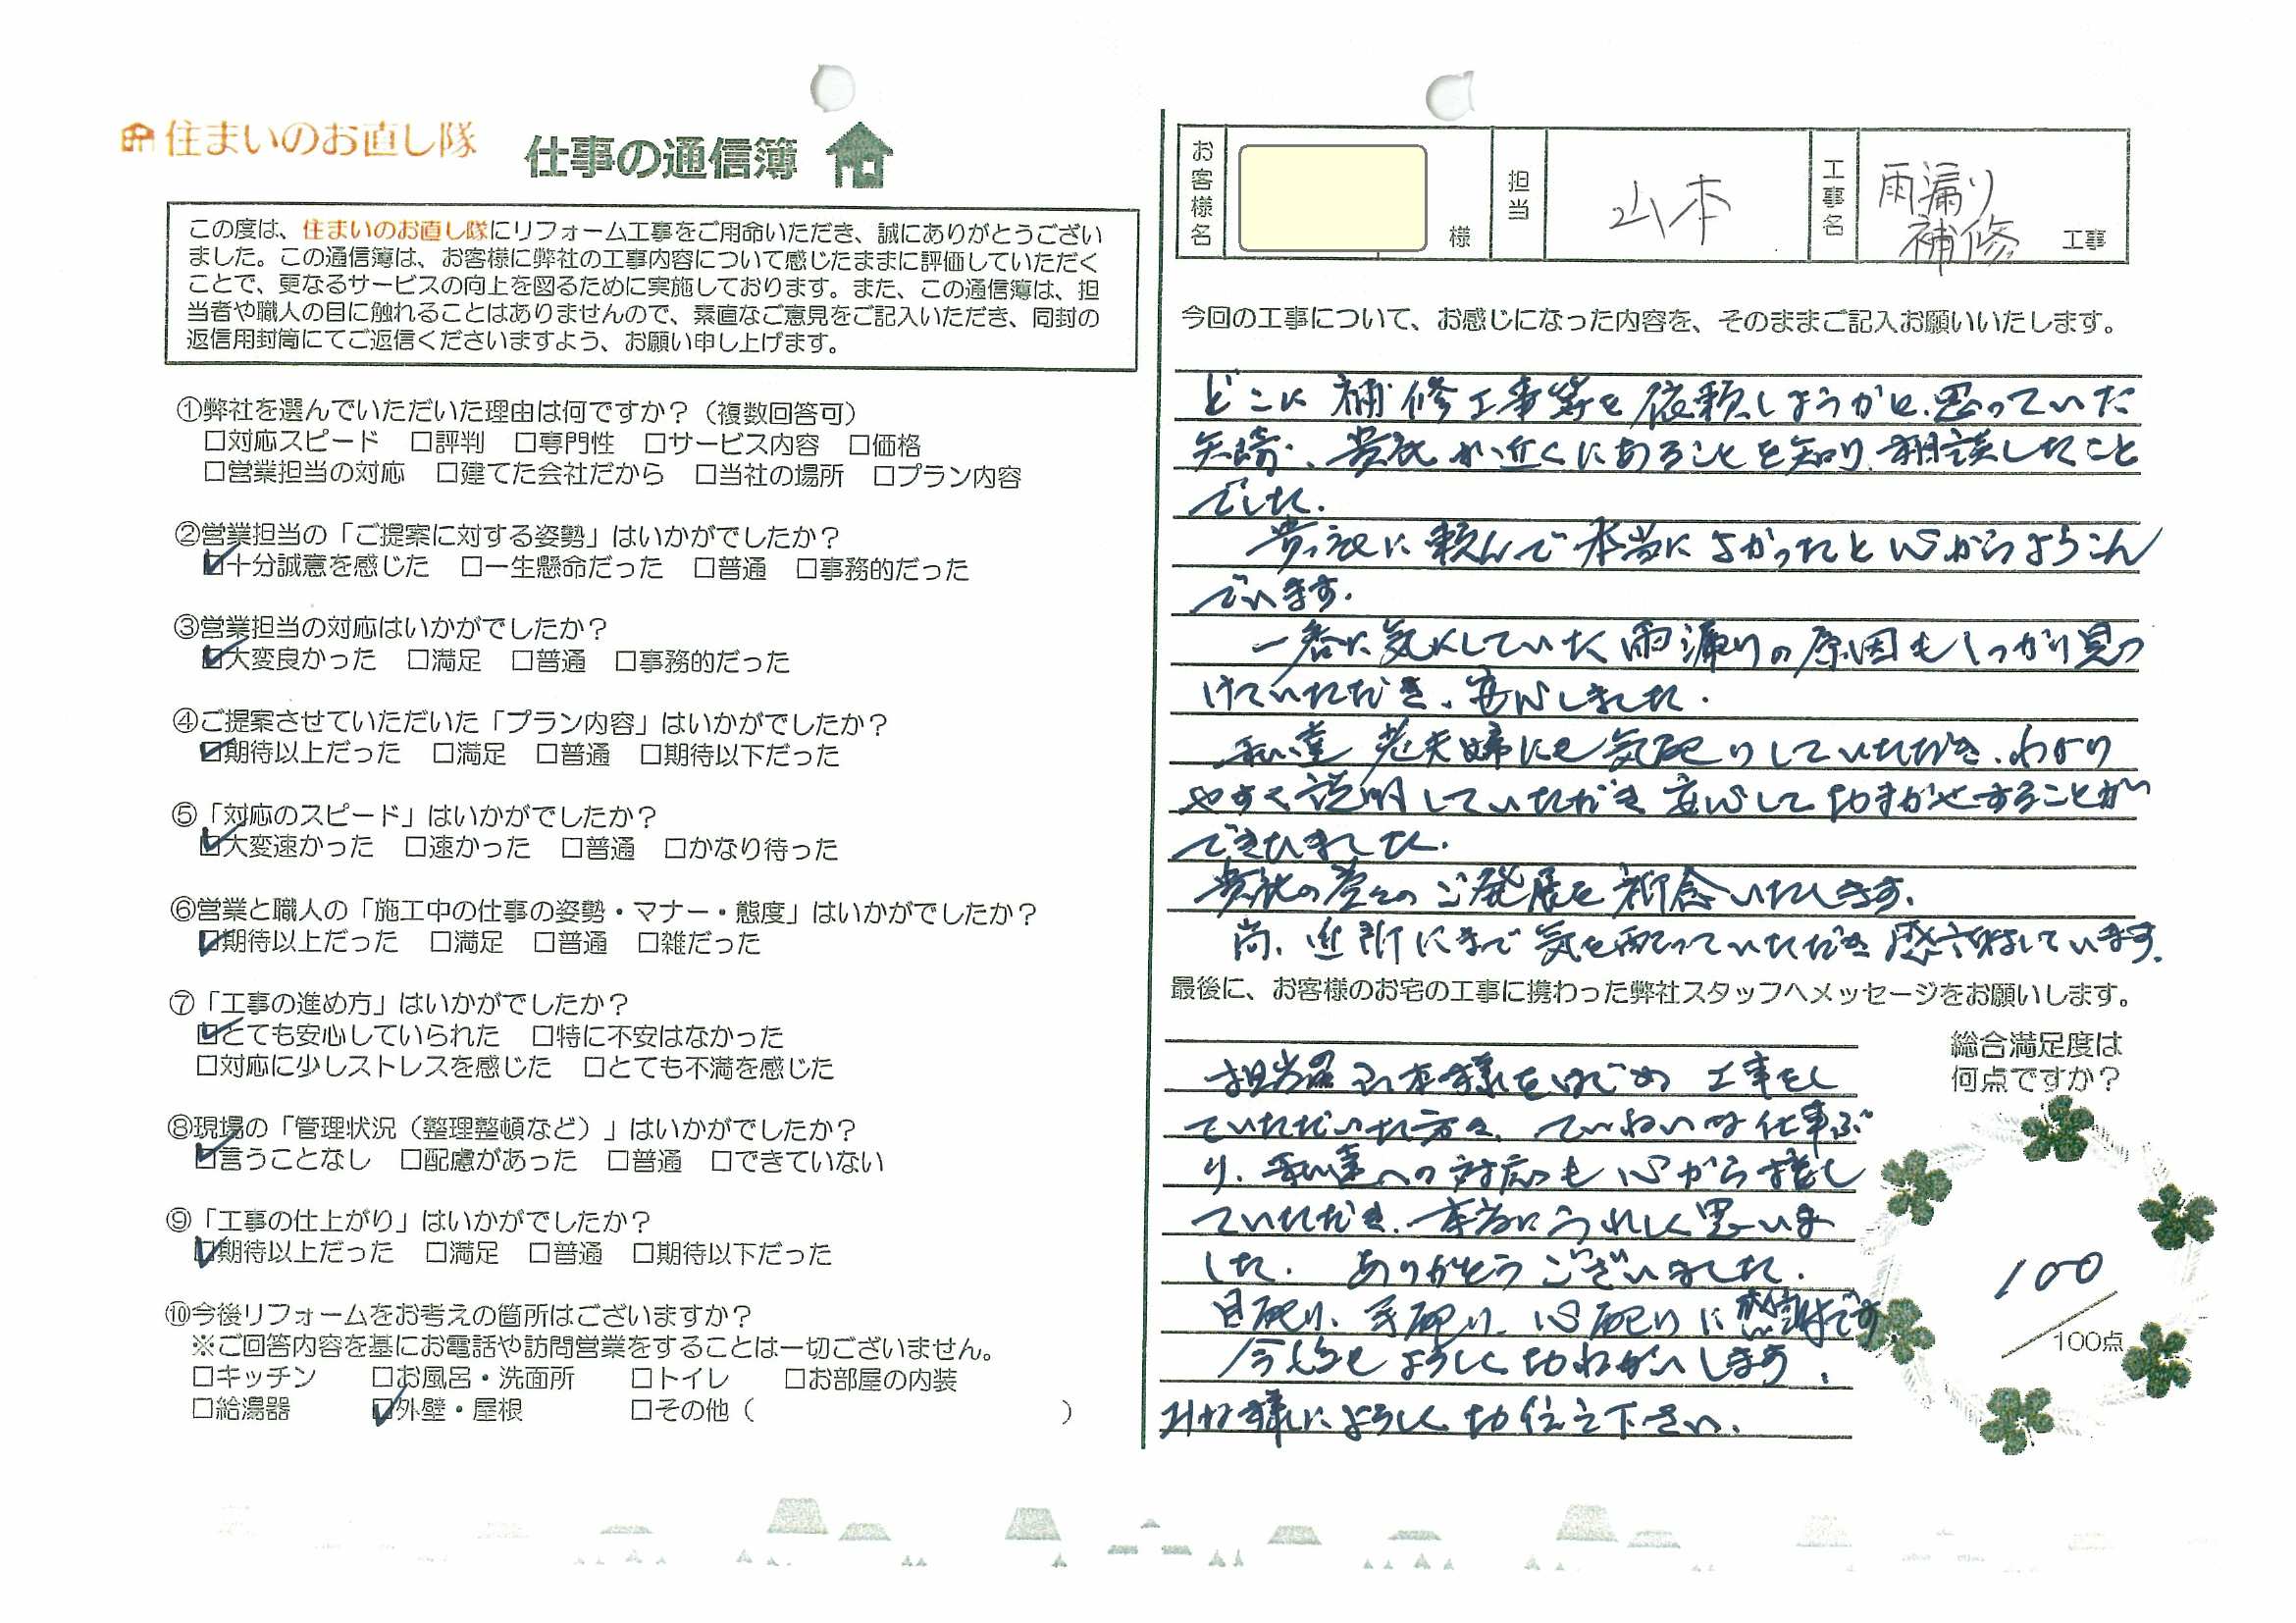 住まいのお直し隊
仕事の通信簿
この度は、住まいのお直し隊にリフォーム工事をご用命いただき、誠にありがとうござい
ました。この通信簿は、お客様に弊社の工事内容について感じたままに評価していただく
ことで、更なるサービスの向上を図るために実施しております。また、この通信簿は、担
当者や職人の目に触れることはありませんので、素直なご意見をご記入いただき、同封の
返信用封筒にてご返信くださいますよう、お願い申し上げます。
①弊社を選んでいただいた理由は何ですか？（複数回答可）
□対応スピード □評判 □専門性 □サービス内容 □価格
□営業担当の対応 □建てた会社だから □当社の場所 □プラン内容
②営業担当の「ご提案に対する姿勢」はいかがでしたか？
☑十分誠意を感じた □一生懸命だった □普通 □事務的だった
③営業担当の対応はいかがでしたか？
☑大変良かった □満足 □普通 □事務的だった
④ご提案させていただいた「プラン内容」はいかがでしたか？
☑期待以上だった □満足 □普通 □期待以下だった
⑤「対応のスピード」はいかがでしたか？
☑大変速かった □速かった □普通 □かなり待った
⑥営業と職人の「施工中の仕事の姿勢・マナー・態度」はいかがでしたか？
☑期待以上だった □満足 □普通 □雑だった
⑦「工事の進め方」はいかがでしたか？
☑とても安心していられた □特に不安はなかった
□対応に少しストレスを感じた □とても不満を感じた
⑧現場の「管理状況（整理整頓など）」はいかがでしたか？
☑言うことなし □配慮があった □普通 □できていない
⑨「工事の仕上がり」はいかがでしたか？
☑期待以上だった □満足 □普通 □期待以下だった
⑩今後リフォームをお考えの箇所はございますか？
※ご回答内容を基にお電話や訪問営業をすることは一切ございません。
□キッチン □お風呂・洗面所 □トイレ □お部屋の内装
□給湯器 ☑外壁・屋根 □その他（ ）
お客様名 様 担当 山本 工事名 雨漏り
補修 工事
今回の工事について、お感じになった内容を、そのままご記入お願いいたします。
どこに補修工事等を依頼しようかと思っていた
矢先、貴社が近くにあることを知り、相談したこと
でした。
貴社に頼んで本当によかったと心からよろこん
でいます。
一番に気にしていた雨漏りの原因もしっかり見つ
けていただき、安心しました。
私達老夫婦にも気配りしていただき、わかり
やすく説明していただき安心しておまかせすることが
できました。
貴社の益々のご発展を祈念いたします。
尚、近所にまで気を配っていただき感謝しています。
最後に、お客様のお宅の工事に携わった弊社スタッフへメッセージをお願いします。
担当 山本様をはじめ 工事をし
ていただいた方々、ていねいな仕事ぶ
り、私達への対応も心から接し
ていただき、本当にうれしく思いま
した。ありがとうございました。
目配り、手配り、心配りに感謝です
今後もよろしくおねがいします。
みな様によろしくお伝え下さい。
総合満足度は
何点ですか？
100
100点